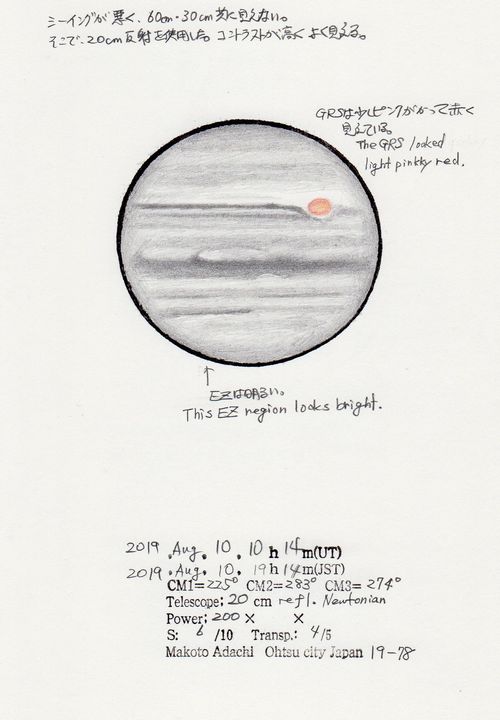 シーイングが悪く、60cm・30cm共に見えない。
そこで、20cm反射を使用した。コントラストが高くよく見える。
GRSは少しピンクがかって赤く
見えている。
The GRS looked
light pinkky red.
↑
EZは明るい。
This EZ region looks bright.
2019 .Aug. 10. 10 h 14m(UT)
2019 .Aug. 10. 19 h 14m(JST)
CM1=225° CM2=283° CM3= 274°
Telescope: 20 cm refl. Newtonian
Power: 200 × ×
S: 6 /10 Transp.: 4/5
Makoto Adachi Ohtsu city Japan 19-78